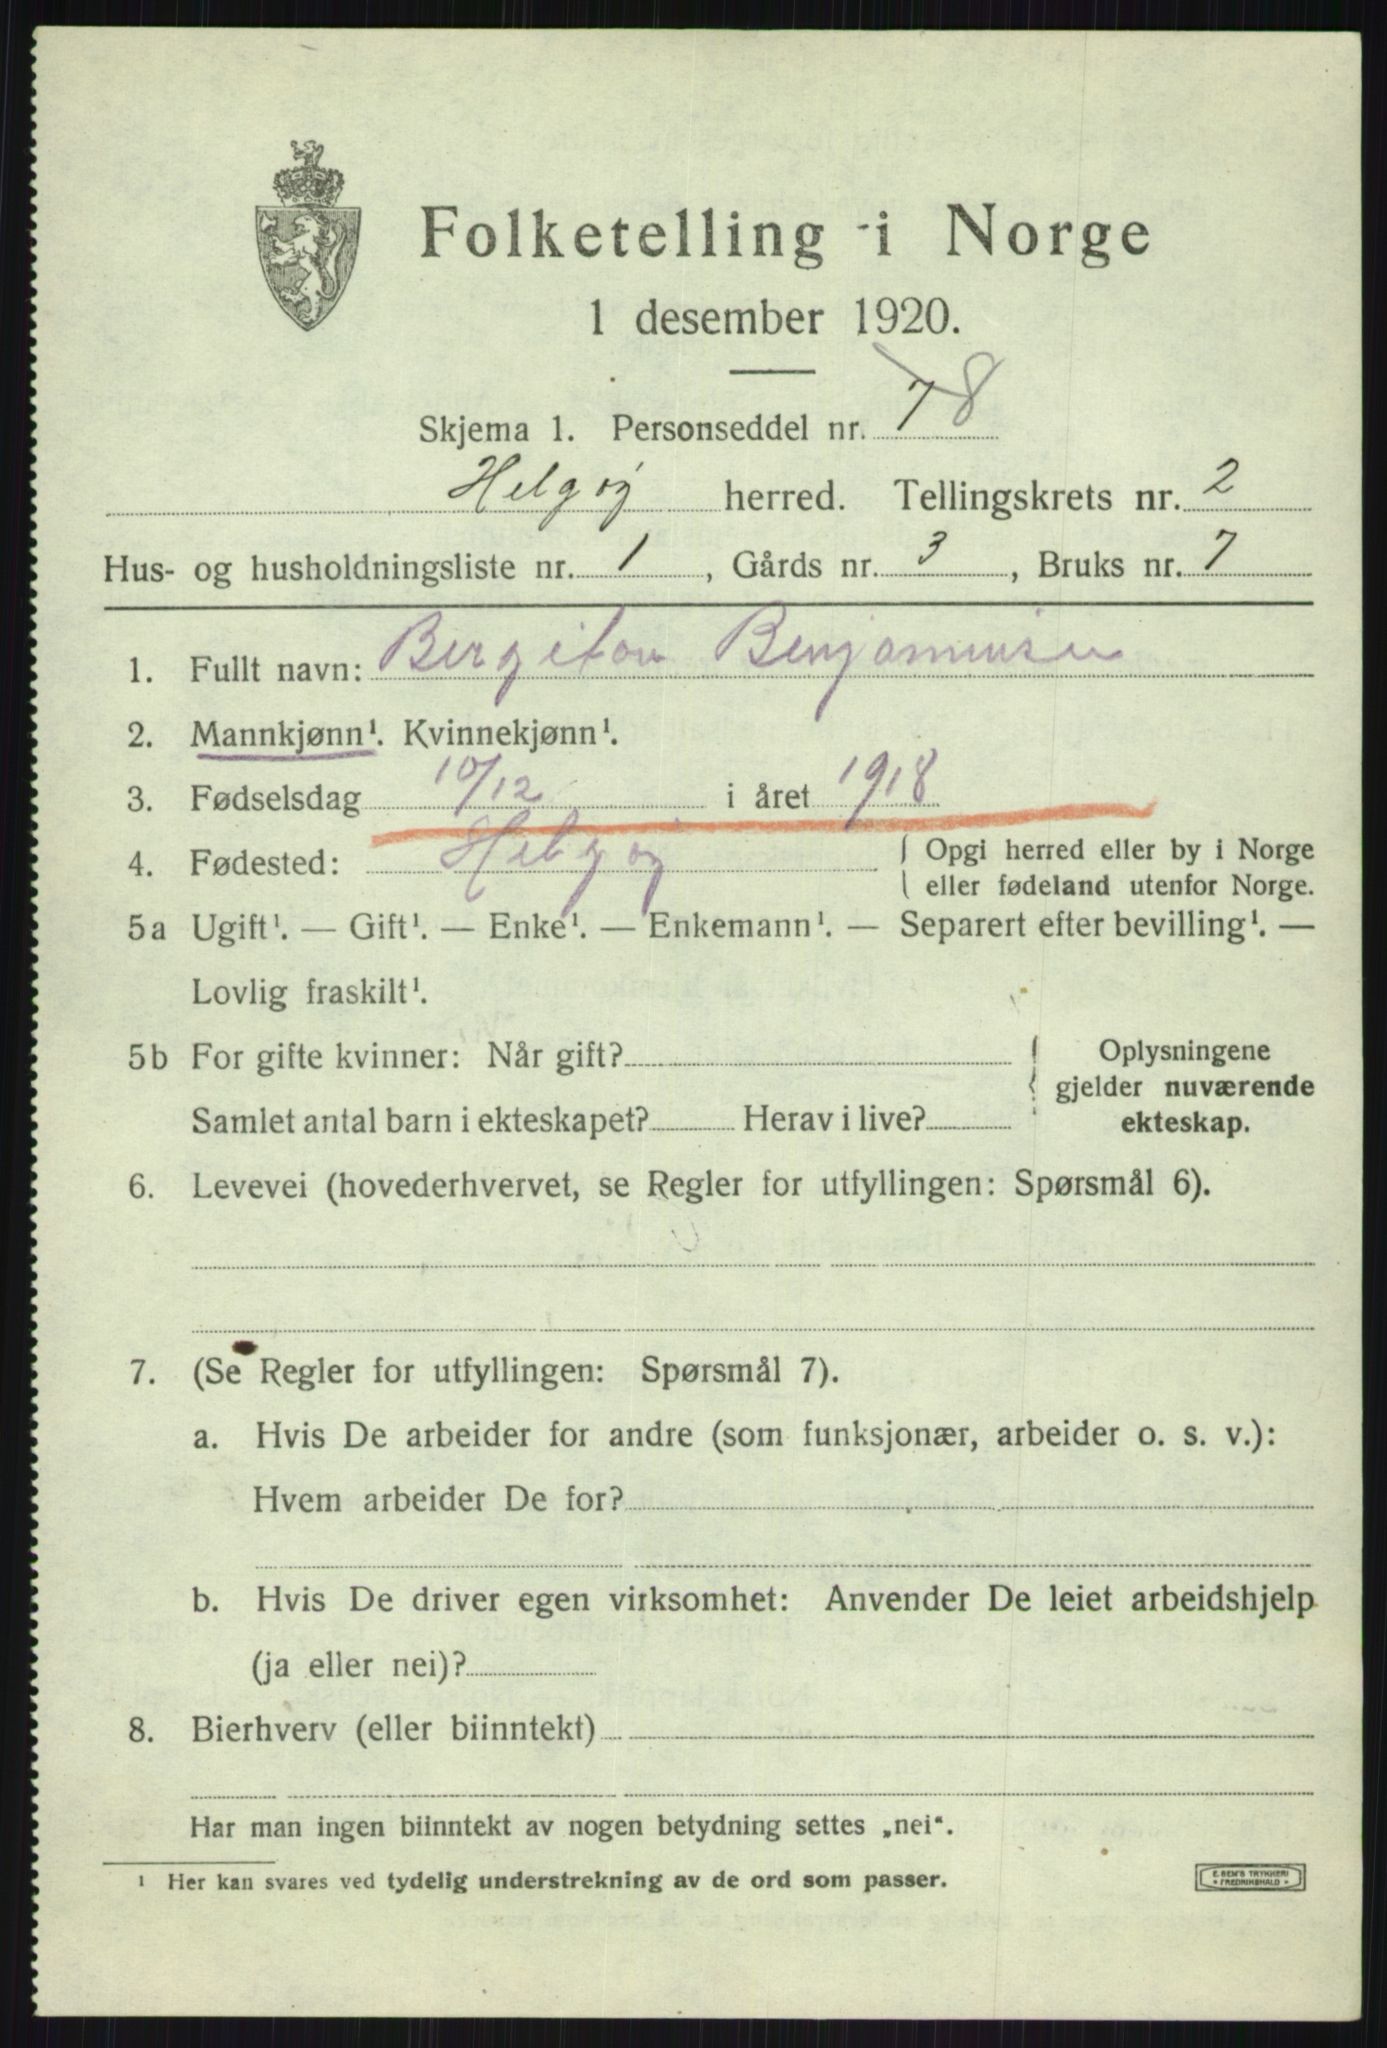 Folketelling i Norge
1 desember 1920.
Skjema 1. Personseddel nr. 7 8
Helgøy herred. Tellingskrets nr. 2
Hus- og husholdningsliste nr. 1, Gårds nr. 3, Bruks nr. 7
1. Fullt navn: Bergiton Benjaminsen
2. Mannkjønn¹. Kvinnekjønn¹.
3. Fødselsdag 10/12 i året 1918
4. Fødested: Helgøy { Opgi herred eller by i Norge
eller fødeland utenfor Norge.
5a Ugift¹. — Gift¹. — Enke¹. — Enkemann¹. — Separert efter bevilling¹. —
Lovlig fraskilt¹.
5b For gifte kvinner: Når gift?
Samlet antal barn i ekteskapet? Herav i live?
{ Oplysningene
gjelder nuværende
ekteskap.
6. Levevei (hovederhvervet, se Regler for utfyllingen: Spørsmål 6).
7. (Se Regler for utfyllingen: Spørsmål 7).
a. Hvis De arbeider for andre (som funksjonær, arbeider o. s. v.):
Hvem arbeider De for?
b. Hvis De driver egen virksomhet: Anvender De leiet arbeidshjelp
(ja eller nei)?
8. Bierhverv (eller biinntekt)
Har man ingen biinntekt av nogen betydning settes „nei“.
¹ Her kan svares ved tydelig understrekning av de ord som passer.
E. SEM'S TRYKKERI
• FREDRIKSHALD •